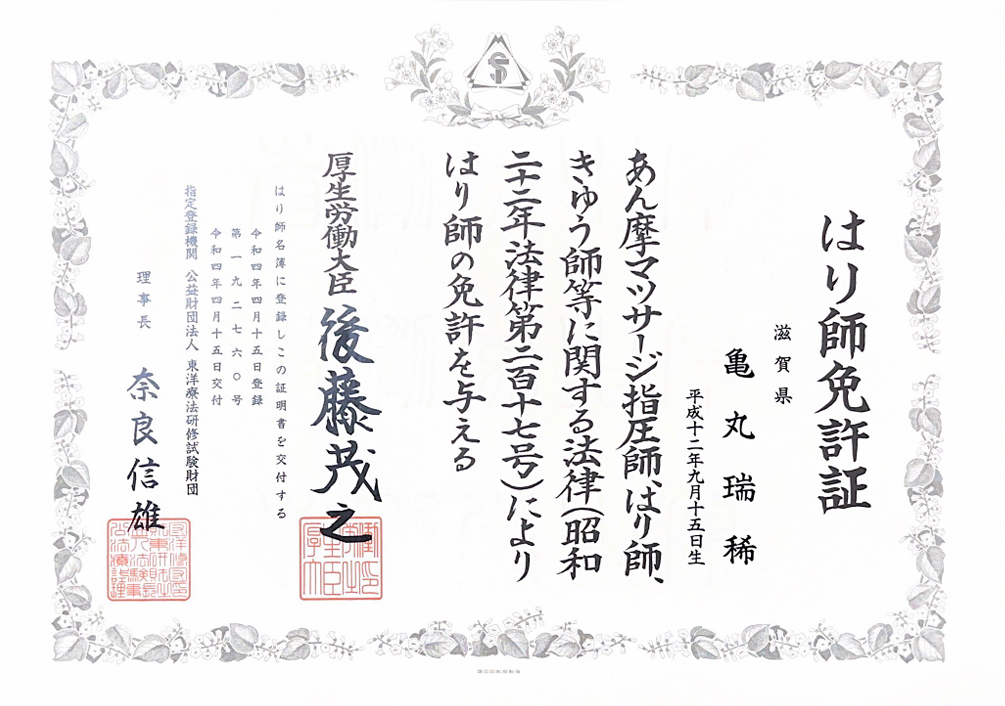 はり師免許証
滋賀県
亀丸瑞稀
平成十二年九月十五日生
あん摩マツサージ指圧師、はり師、
きゆう師等に関する法律(昭和
二十二年法律第二百十七号)により
はり師の免許を与える
厚生労働大臣 後藤茂之
はり師名簿に登録しこの証明書を交付する
令和四年四月十五日登録
第一九二七六〇号
令和四年四月十五日交付
指定登録機関 公益財団法人 東洋療法研修試験財団
理事長 奈良信雄